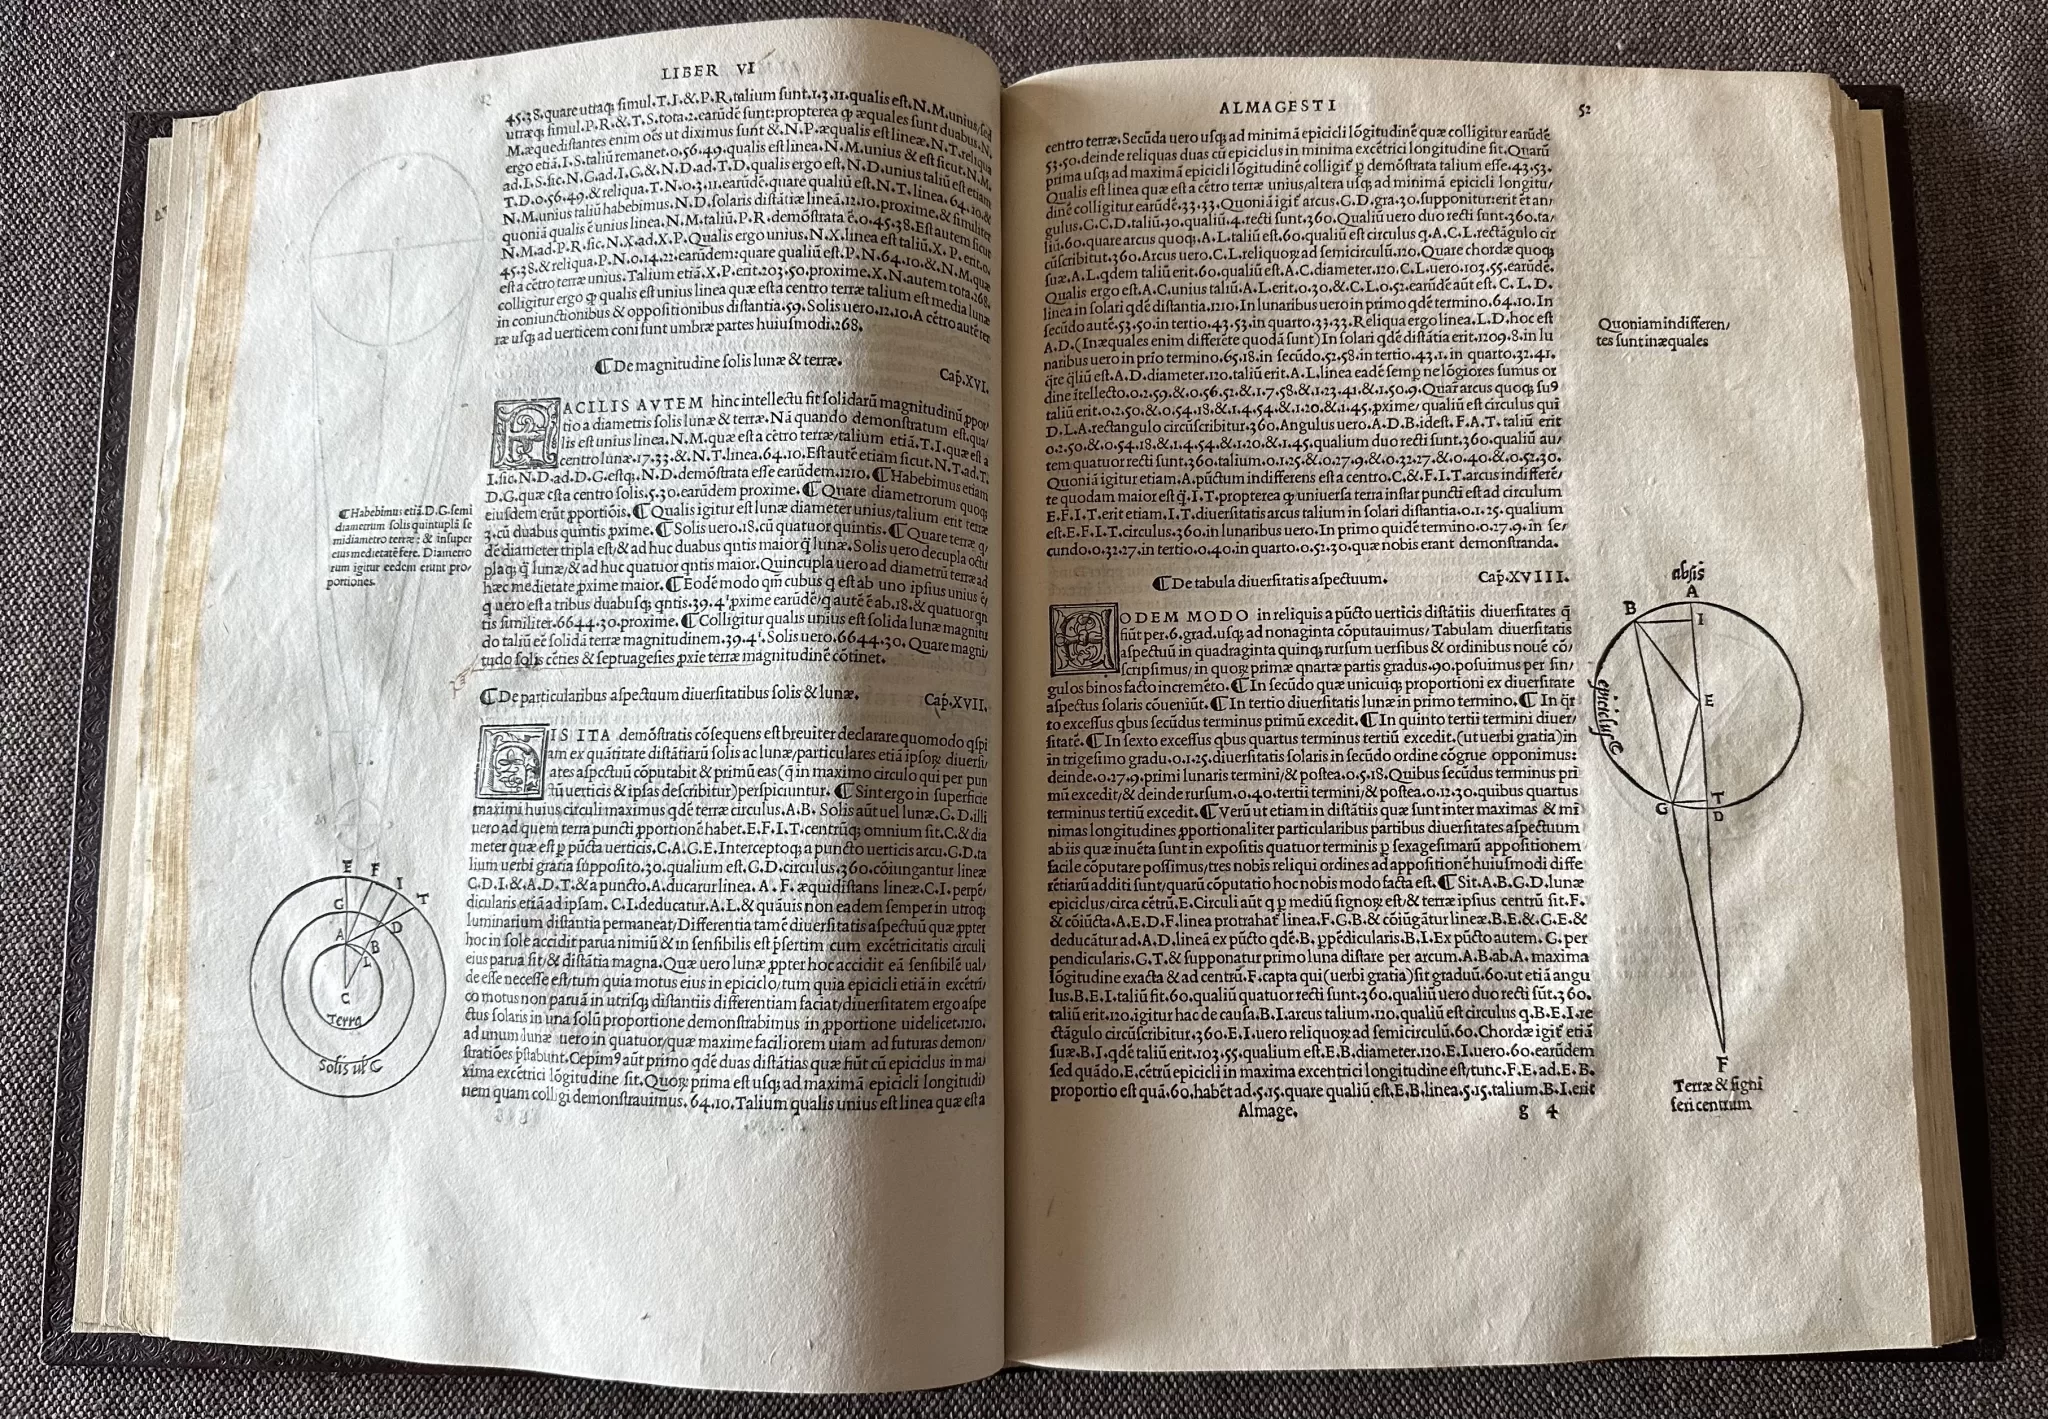 LIBER VI
45.38. quare utraq; simul. T. I. & P. R. talium sunt. 1. 3. 11. qualis est. N. M. unius/sed
utræq; simul. P. R. & T. S. tota. 2. earūdē sunt: propterea ꝙ æquales sunt duabus. N.
M. æquedistantes enim oēs ut diximus sunt & N. P. æqualis est lineæ. N. T. reliqua
ergo etiā. I. S. taliū remanet. 0. 56. 49. qualis est linea. N. M. unius & est sicut. N. M.
ad. I. S. sic. N. G. ad. I. G. & N. D. ad. T. D. qualis ergo est. N. D. unius taliū est etiam
T. D. 0. 56. 49. & reliqua. T. N. 0. 3. 11. earūdē. quare qualiū est. N. T. linea. 64. 10. &
N. M. unius taliū habebimus. N. D. solaris distātiæ lineā. 1210. proxime. & similiter
quoniā qualis ē unius linea. N. M. taliū. P. R. demōstrata ē. 0. 45. 38. Est autem sicut
N. M. ad. P. R. sic. N. X. ad. X. P. Qualis ergo unius. N. X. linea est taliū. X. P. erit. 0.
45. 38. & reliqua. P. N. 0. 14. 22. earūdem: quare qualiū est. P. N. 64. 10. & N. M. quæ
est a cētro terræ unius. Talium etiā. X. P. erit. 203. 50. proxime. X. N. autem tota. 268.
colligitur ergo ꝙ qualis est unius linea quæ est a centro terræ talium est media lunæ
in coniunctionibus & oppositionibus distantia. 59. Solis uero. 1210. A cētro autē ter
ræ usq; ad uerticem coni sunt umbræ partes huiusmodi. 268.
¶ De magnitudine solis lunæ & terræ.
Cap̄. XVI.
FACILIS AVTEM hinc intellectu fit solidarū magnitudinū ꝓpor/
tio a diametris solis lunæ & terræ. Nā quando demonstratum est, qua/
lis est unius linea. N. M. quæ est a cētro terræ/talium etiā. T. I. quæ est a
centro lunæ. 17. 33. & N. T. linea. 64. 10. Est autē etiam sicut. N. T. ad. T.
I. sic. N. D. ad. D. G. estq;. N. D. demōstrata esse earūdem. 1210. ¶ Habebimus etiam
D. G. quæ est a centro solis. 5. 30. earūdem proxime. ¶ Quare diametrorum quoq;
eiusdem erūt ꝓportiōis. ¶ Qualis igitur est lunæ diameter unius/talium erit terræ
3. cū duabus quintis ꝓxime. ¶ Solis uero. 18. cū quatuor quintis. ¶ Quare terræ q/
dē diameter tripla est/& ad huc duabus qntis maior q̄ lunæ. Solis uero decupla octu
plaq; q̄ lunæ/& ad huc quatuor qntis maior. Quincupla uero ad diametrū terræ ad
hæc medietate ꝓxime maior. ¶ Eodē modo qm̄ cubus q est ab uno ipsius unius ē/
q uero est a tribus duabusq; qntis. 39. 4ʹ. ꝓxime earūdē/q autē ē ab. 18. & quatuor qn
tis similiter. 6644. 30. proxime. ¶ Colligitur qualis unius est solida lunæ magnitu
do taliū eē solidā terræ magnitudinem. 39. 4ʹ. Solis uero. 6644. 30. Quare magni/
tudo solis cēties & septuagesies ꝓxie terræ magnitudinē cōtinet.
¶ De particularibus aspectuum diuersitatibus solis & lunæ.
Cap̄. XVII.
IS ITA demōstratis cōsequens est breuiter declarare quomodo qspi
am ex quātitate distātiarū solis ac lunæ/particulares etiā ipsoꝝ diuersi/
tates aspectuū cōputabit & primū eas (q̄ in maximo circulo qui per pun
ctū uerticis & ipsas describitur) perspiciuntur. ¶ Sint ergo in superficie
maximi huius circuli maximus qdē terræ circulus. A. B. Solis aūt uel lunæ. G. D. illi
uero ad quem terra puncti ꝓportionē habet. E. F. I. T. centrūq; omnium sit. C. & dia
meter quæ est ꝑ pūcta uerticis. C. A. G. E. Interceptoq; a puncto uerticis arcu. G. D. ta
lium uerbi gratia supposito. 30. qualium est. G. D. circulus. 360. cōiungantur lineæ
C. D. I. & A. D. T. & a puncto. A. ducatur linea. A. F. æquidistans lineæ. C. I. perpē/
dicularis etiā ad ipsam. C. I. deducatur. A. L. & quāuis non eadem semper in utroq;
luminarium distantia permaneat/Differentia tamē diuersitatis aspectuū quæ ꝓpter
hoc in sole accidit parua nimiū & in sensibilis est p̄sertim cum excētricitatis circuli
eius parua sit/& distātia magna. Quæ uero lunæ ꝓpter hoc accidit eā sensibilē ual/
de esse necesse est/tum quia motus eius in epiciclo/tum quia epicicli etiā in excētri/
co motus non paruā in utrisq; distantiis differentiam faciat/diuersitatem ergo aspe
ctus solaris in una solū proportione demonstrabimus in ꝓportione uidelicet. 1210.
ad unum lunæ uero in quatuor/quæ maxime faciliorem uiam ad futuras demon/
stratiōes p̄stabunt. Cepimꝰ aūt primo qdē duas distātias quæ fiūt cū epiciclus in ma/
xima excētrici lōgitudine sit. Quoꝝ prima est usq; ad maximā epicicli longitudi/
nem quam colligi demonstrauimus. 64. 10. Talium qualis unius est linea quæ est a
¶ Habebimus etiā. D. G. semi
diametrum solis quintuplā se
midiametro terræ: & insuper
eius medietatē fere. Diametro
rum igitur eedem erunt pro/
portiones.
E F I T
G D
A B
L
C
Terra
Solis uł ☾
ALMAGESTI
52
centro terræ. Secūda uero usq; ad minimā epicicli lōgitudinē quæ colligitur earūdē
53. 50. deinde reliquas duas cū epiciclus in minima excētrici longitudine sit. Quarū
prima usq; ad maximā epicicli lōgitudinē colligit̄ ꝑ demōstrata talium esse. 43. 53.
Qualis est linea quæ est a cētro terræ unius/altera usq; ad minimā epicicli longitu/
dinē colligitur earūdē. 33. 33. Quoniā igit̄ arcus. G. D. gra. 30. supponitur: erit et an/
gulus. G. C. D. taliū. 30. qualiū. 4. recti sunt. 360. Qualiū uero duo recti sunt. 360. ta/
liū. 60. quare arcus quoq;. A. L. taliū est. 60. qualiū est circulus q. A. C. L. rectāgulo cir
cūscribitur. 360. Arcus uero. C. L. reliquoꝝ ad semicirculū. 120. Quare chordæ quoq;
suæ. A. L. qdem taliū erit. 60. qualiū est. A. C. diameter. 120. C. L. uero. 103. 55. earūdē.
Qualis ergo est. A. C. unius taliū. A. L. erit. 0. 30. & C. L. 0. 52. earūdē aūt est. C. L. D.
linea in solari qdē distantia. 1210. In lunaribus uero in primo qdē termino. 64. 10. In
secūdo autē. 53. 50. in tertio. 43. 53. in quarto. 33. 33. Reliqua ergo linea. L. D. hoc est
A. D. (In æquales enim differēte quodā sunt) In solari qdē distātia erit. 1209. 8. in lu
naribus uero in prīo termino. 65. 18. in secūdo. 52. 58. in tertio. 43. 1. in quarto. 32. 41.
q̄re q̄liū est. A. D. diameter. 120. taliū erit. A. L. linea eadē semꝑ ne lōgiores sumus or
dine itellecto. 0. 2. 59. & 0. 56. 52. & 1. 7. 58. & 1. 23. 41. & 1. 50. 9. Quar̄ arcus quoq; suꝰ
taliū erit. 0. 2. 50. & 0. 54. 18. & 1. 4. 54. & 1. 20. & 1. 45. ꝓxime/qualiū est circulus qui
D. L. A. rectangulo circūscribitur. 360. Angulus uero. A. D. B. id est. F. A. T. taliū erit
0. 2. 50. &. 0. 54. 18. & 1. 4. 54. & 1. 20. & 1. 45. qualium duo recti sunt. 360. qualiū au/
tem quatuor recti sunt. 360. talium. 0. 1. 25. & 0. 27. 9. & 0. 32. 27. & 0. 40. & 0. 52. 30.
Quoniā igitur etiam. A. pūctum indifferens est a centro. C. & F. I. T. arcus indifferē/
te quodam maior est q̄. I. T. propterea ꝙ uniuersa terra instar puncti est ad circulum
E. F. I. T. erit etiam. I. T. diuersitatis arcus talium in solari distantia. 0. 1. 25. qualium
est. E. F. I. T. circulus. 360. in lunaribus uero. In primo quidē termino. 0. 27. 9. in se/
cundo. 0. 32. 27. in tertio. 0. 40. in quarto. 0. 52. 30. quæ nobis erant demonstranda.
Quoniam in differen/
tes sunt inæquales
¶ De tabula diuersitatis aspectuum.
Cap̄. XVIII.
EODEM MODO in reliquis a pūcto uerticis distātiis diuersitates q̄
fiūt per. 6. grad. usq; ad nonaginta cōputauimus/Tabulam diuersitatis
aspectuū in quadraginta quinq; rursum uersibus & ordinibus nouē cō/
scripsimus/in quoꝝ primæ qnartæ partis gradus. 90. posuimus per sin/
gulos binos facto incremēto. ¶ In secūdo quæ unicuiq; proportioni ex diuersitate
aspectus solaris cōueniūt. ¶ In tertio diuersitatis lunæ in primo termino. ¶ In q̄r
to excessus qbus secūdus terminus primū excedit. ¶ In quinto tertii termini diuer/
sitatē. ¶ In sexto excessus qbus quartus terminus tertiū excedit. (ut uerbi gratia) in
in trigesimo gradu. 0. 1. 25. diuersitatis solaris in secūdo ordine cōgrue opponimus:
deinde. 0. 27. 9. primi lunaris termini/& postea. 0. 5. 18. Quibus secūdus terminus pri
mū excedit/& deinde rursum. 0. 40. tertii termini/& postea. 0. 12. 30. quibus quartus
terminus tertiū excedit. ¶ Verū ut etiam in distātiis quæ sunt inter maximas & mi
nimas longitudines ꝓportionaliter particularibus partibus diuersitates aspectuum
ab iis quæ inuēta sunt in expositis quatuor terminis ꝑ sexagesimarū appositionem
facile cōputare possimus/tres nobis reliqui ordines ad appositionē huiusmodi diffe
rētiarū additi sunt/quarū cōputatio hoc nobis modo facta est. ¶ Sit. A. B. G. D. lunæ
epiciclus/circa cētrū. E. Circuli aūt q ꝑ mediū signoꝝ est/& terræ ipsius centrū sit. F.
& cōiūcta. A. E. D. F. linea protrahat̄ linea. F. G. B. & cōiūgātur lineæ. B. E. & G. E. &
deducātur ad. A. D. lineā ex pūcto qdē. B. ꝑpēdicularis. B. I. Ex pūcto autem. G. per
pendicularis. G. T. & supponatur primo luna distare per arcum. A. B. ab. A. maxima
lōgitudine exacta & ad centrū. F. capta qui (uerbi gratia) sit graduū. 60. ut etiā angu
lus. B. E. I. taliū sit. 60. qualiū quatuor recti sunt. 360. qualiū uero duo recti sūt. 360.
taliū erit. 120. igitur hac de causa. B. I. arcus talium. 120. qualiū est circulus q. B. E. I. re
ctāgulo circūscribitur. 360. E. I. uero reliquoꝝ ad semicirculū. 60. Chordæ igit̄ etiā
suæ. B. I. qdē taliū erit. 103. 55. qualium est. E. B. diameter. 120. E. I. uero. 60. earūdem
sed quādo. E. cētrū epicicli in maxima excentrici longitudine est/tunc. F. E. ad. E. B.
proportio est quā. 60. habēt ad. 5. 15. quare qualiū est. E. B. linea. 5. 15. talium. B. I. erit
Almage.
g 4
absis
A
B I
E
epiciclus ☾
G T
D
F
Terræ & signi
feri centrum